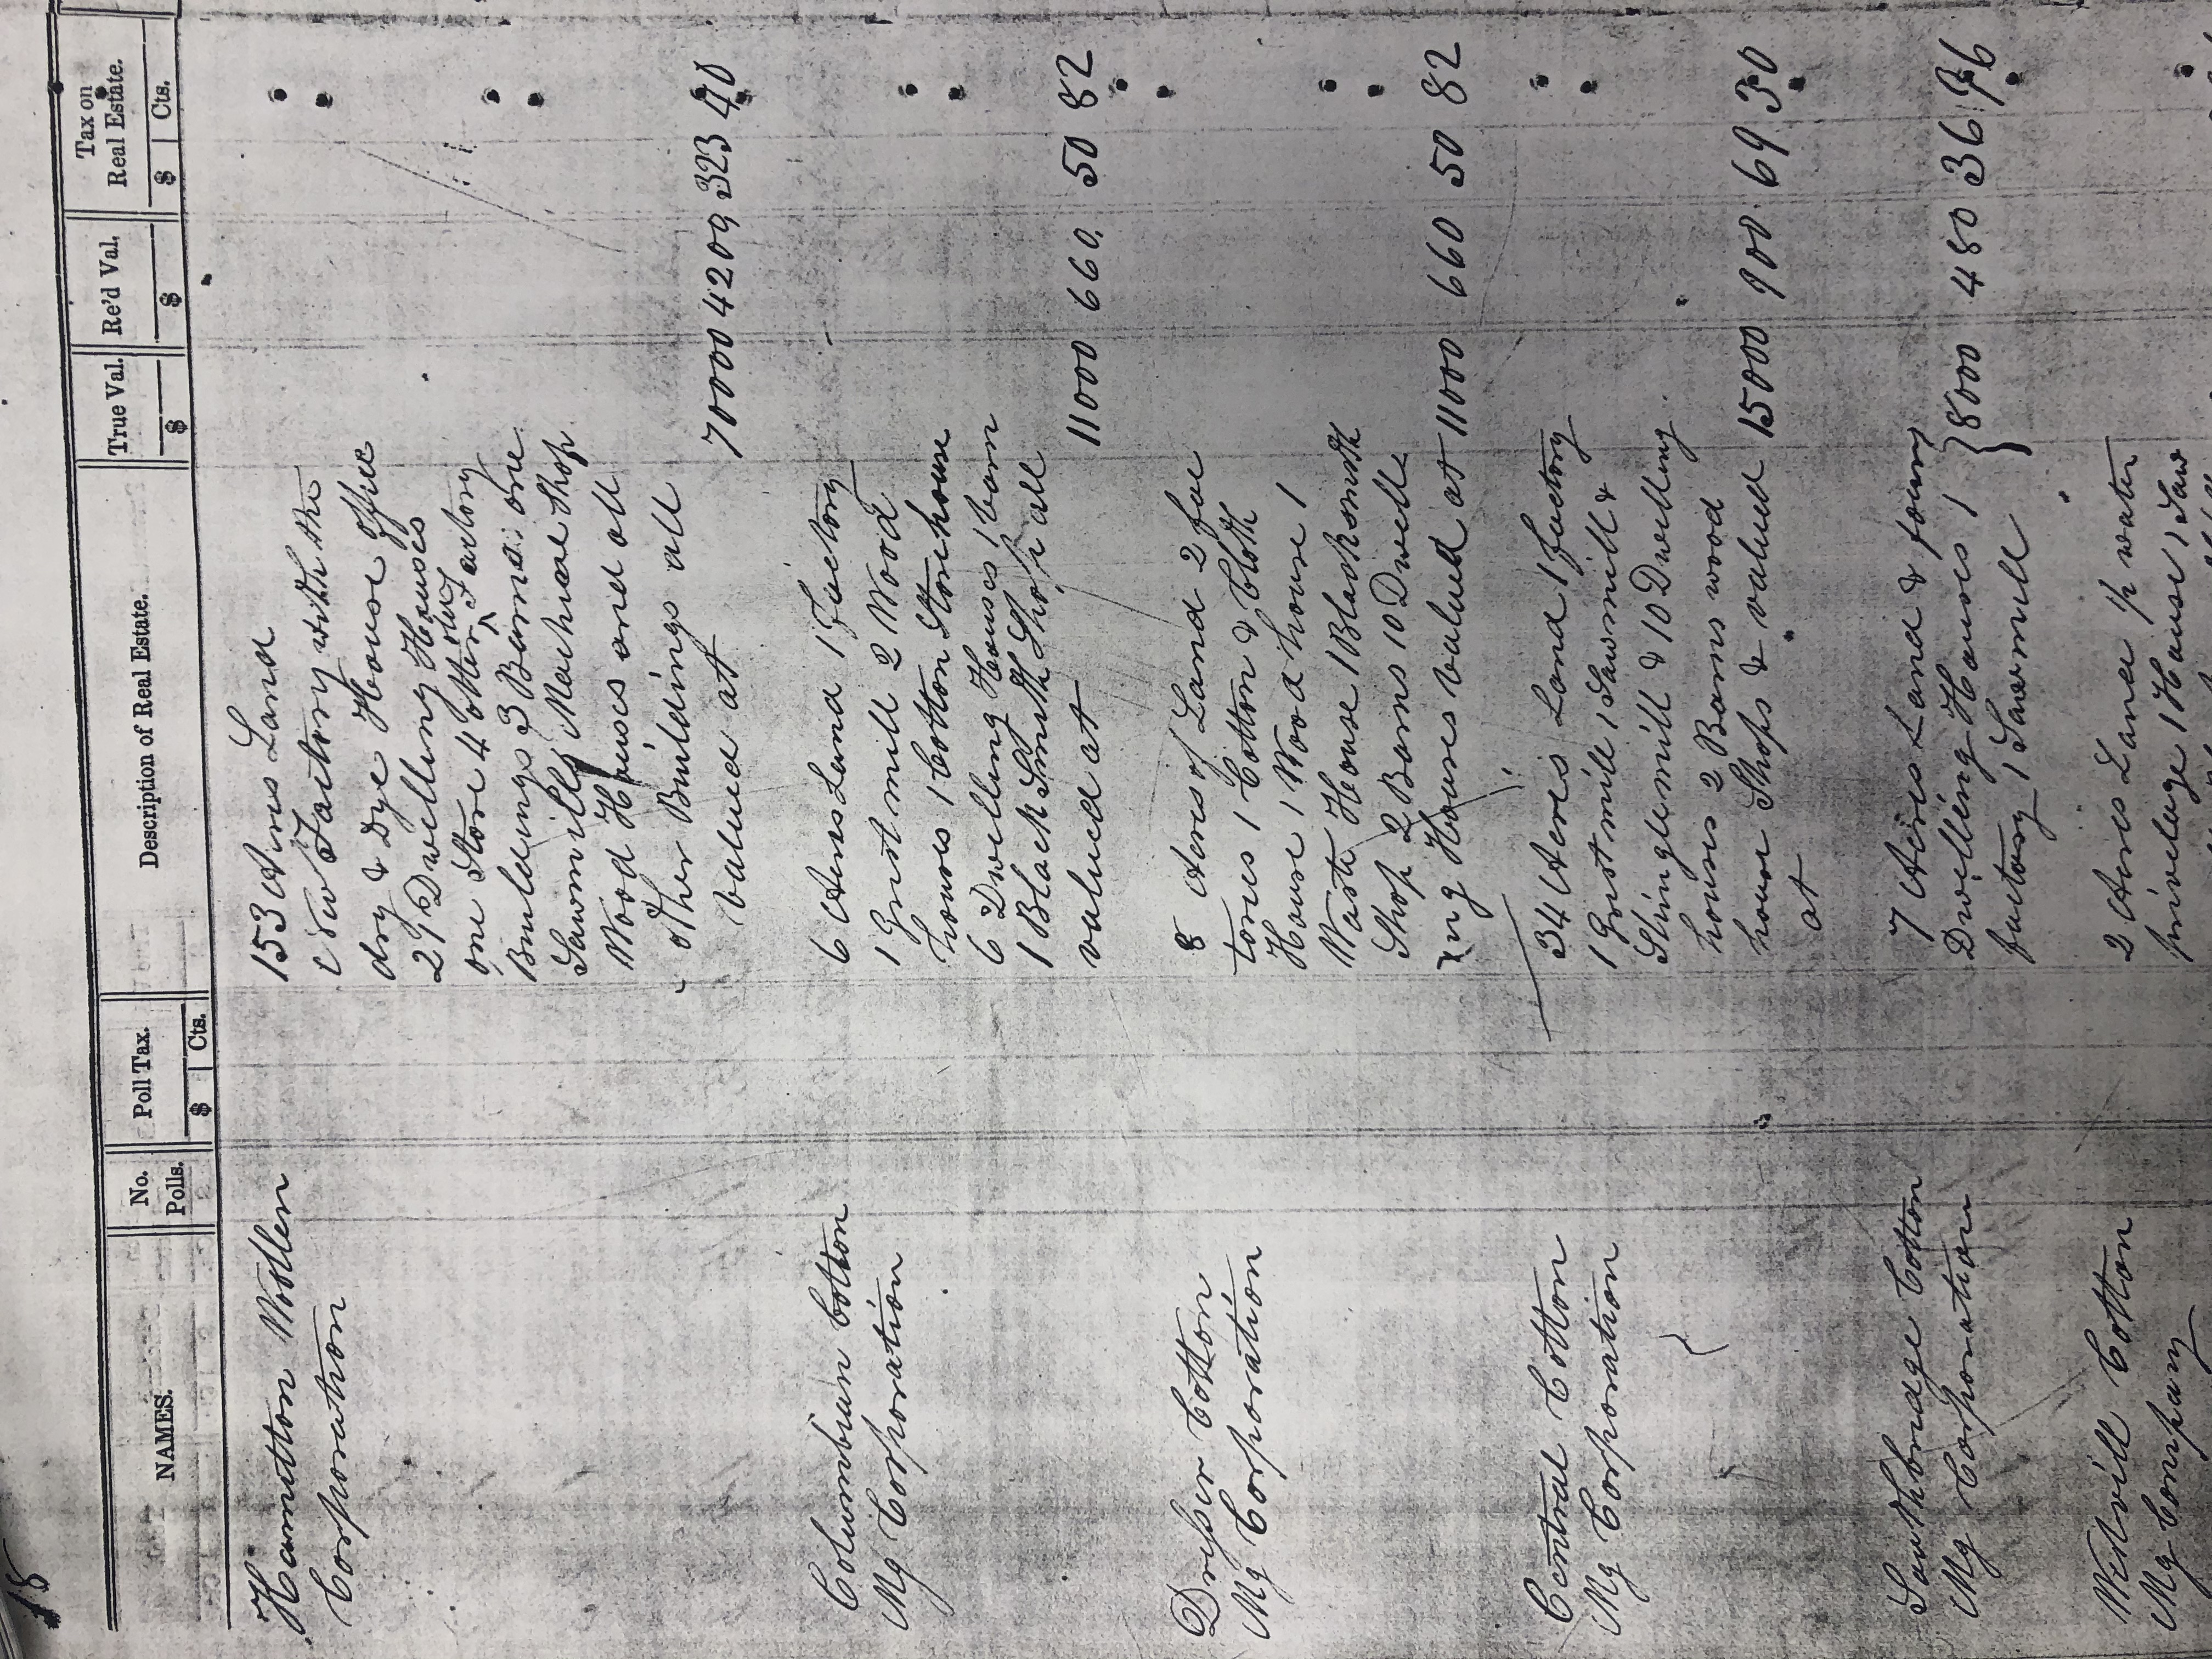 18
NAMES. No. Polls. Poll Tax. $ Cts. Description of Real Estate. True Val. $ Re'd Val. $ Tax on Real Estate. $ Cts.
Hamilton Woollen 153 Acres Land
Corporation New Factory with the
dry & Dye House office
21 Dwelling Houses
one Store 4 other older Factory
Buildings 3 Barns one
Sawmill Machine Shop
Wood Houses and all
other Buildings all
valued at 70000 4200 323 40
Columbian Cotton 6 Acres Land 1 factory
Mg Corporation 1 Grist mill 2 Wood
houses 1 Cotton Storehouse
6 Dwelling Houses 1 barn
1 Black Smith Shop all
valued at 11000 660. 50 82
Dresser Cotton 8 Acres of Land 2 fac
Mg Corporation tories 1 Cotton & Cloth
House 1 Wood house 1
Waste House 1 Blacksmith
Shop 2 Barns 10 Dwell
ing Houses valued at 11000 660 50 82
Central Cotton 34 Acres Land 1 factory
Mg Corporation 1 Grist mill 1 Sawmill &
Shinglemill & 10 Dwelling
houses 2 Barns wood
house Shops & valued 15000 900 69 30
at
Southbridge Cotton 7 Acres Land & four
Mg Corporation Dwelling Houses 1 } 8000 480 36 96
factory 1 Sawmill
Westvill Cotton 2 Acres Land 1/2 water
Mg Company privelage 1 House 1 Saw